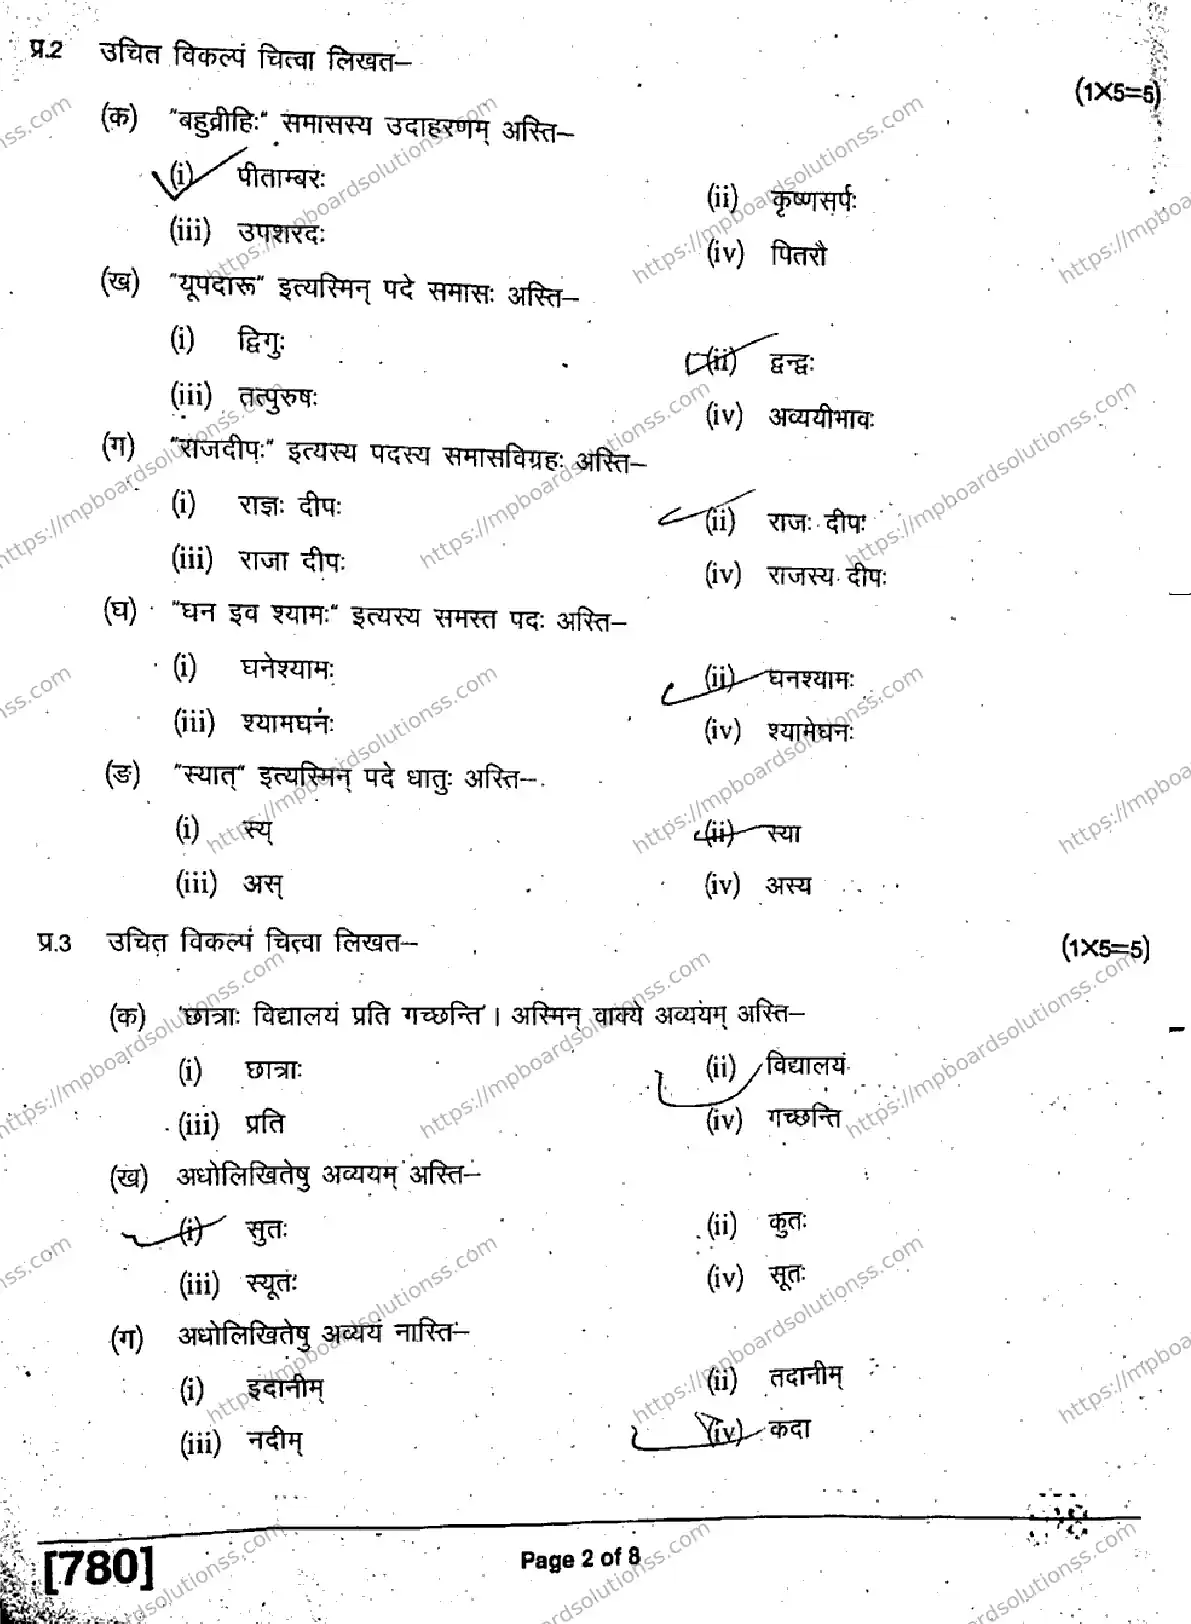 प्र.2 उचित विकल्पं चित्वा लिखत–
(1×5=5)
(क) "बहुव्रीहिः" समासस्य उदाहरणम् अस्ति–
(i) पीताम्बरः (ii) कृष्णसर्पः
(iii) उपशरदः (iv) पितरौ
(ख) "यूपदारू" इत्यस्मिन् पदे समासः अस्ति–
(i) द्विगुः (ii) द्वन्द्वः
(iii) तत्पुरुषः (iv) अव्ययीभावः
(ग) "राजदीपः" इत्यस्य पदस्य समासविग्रहः अस्ति–
(i) राज्ञः दीपः (ii) राजः दीपः
(iii) राजा दीपः (iv) राजस्य दीपः
(घ) "घन इव श्यामः" इत्यस्य समस्त पदः अस्ति–
(i) घनेश्यामः (ii) घनश्यामः
(iii) श्यामघनः (iv) श्यामेघनः
(ङ) "स्यात्" इत्यस्मिन् पदे धातुः अस्ति–
(i) स्य् (ii) स्या
(iii) अस् (iv) अस्य
प्र.3 उचित विकल्पं चित्वा लिखत–
(1×5=5)
(क) 'छात्राः विद्यालयं प्रति गच्छन्ति'। अस्मिन् वाक्ये अव्ययम् अस्ति–
(i) छात्राः (ii) विद्यालयं
(iii) प्रति (iv) गच्छन्ति
(ख) अधोलिखितेषु अव्ययम् अस्ति–
(i) सुतः (ii) कुतः
(iii) स्यूतः (iv) सूतः
(ग) अधोलिखितेषु अव्ययं नास्ति–
(i) इदानीम् (ii) तदानीम्
(iii) नदीम् (iv) कदा
[780] Page 2 of 8
https://mpboardsolutionss.com